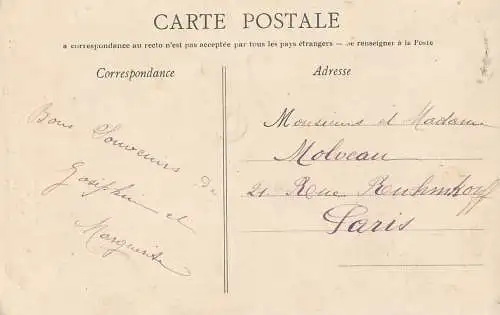 CARTE POSTALE
a correspondance au recto n'est pas acceptée par tous les pays étrangers — se renseigner à la Poste
Correspondance
Adresse
Bons Souvenirs de
Josephine et
Marguerite
Monsieurs et Madame
Molveau
21 Rue Ruhmkorff
Paris